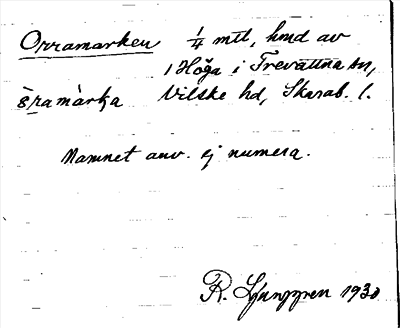 Orramarken 1/4 mtl, hmd av
1 Höga i Trevattna sn,
òramàrka Vilske hd, Skarab. l.
Namnet anv. ej numera.
R. Ljunggren 1930